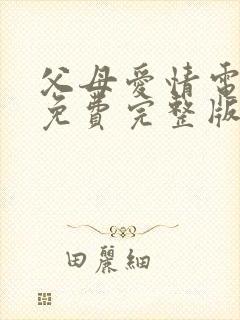 父母愛情電
免費完整版
田麗細